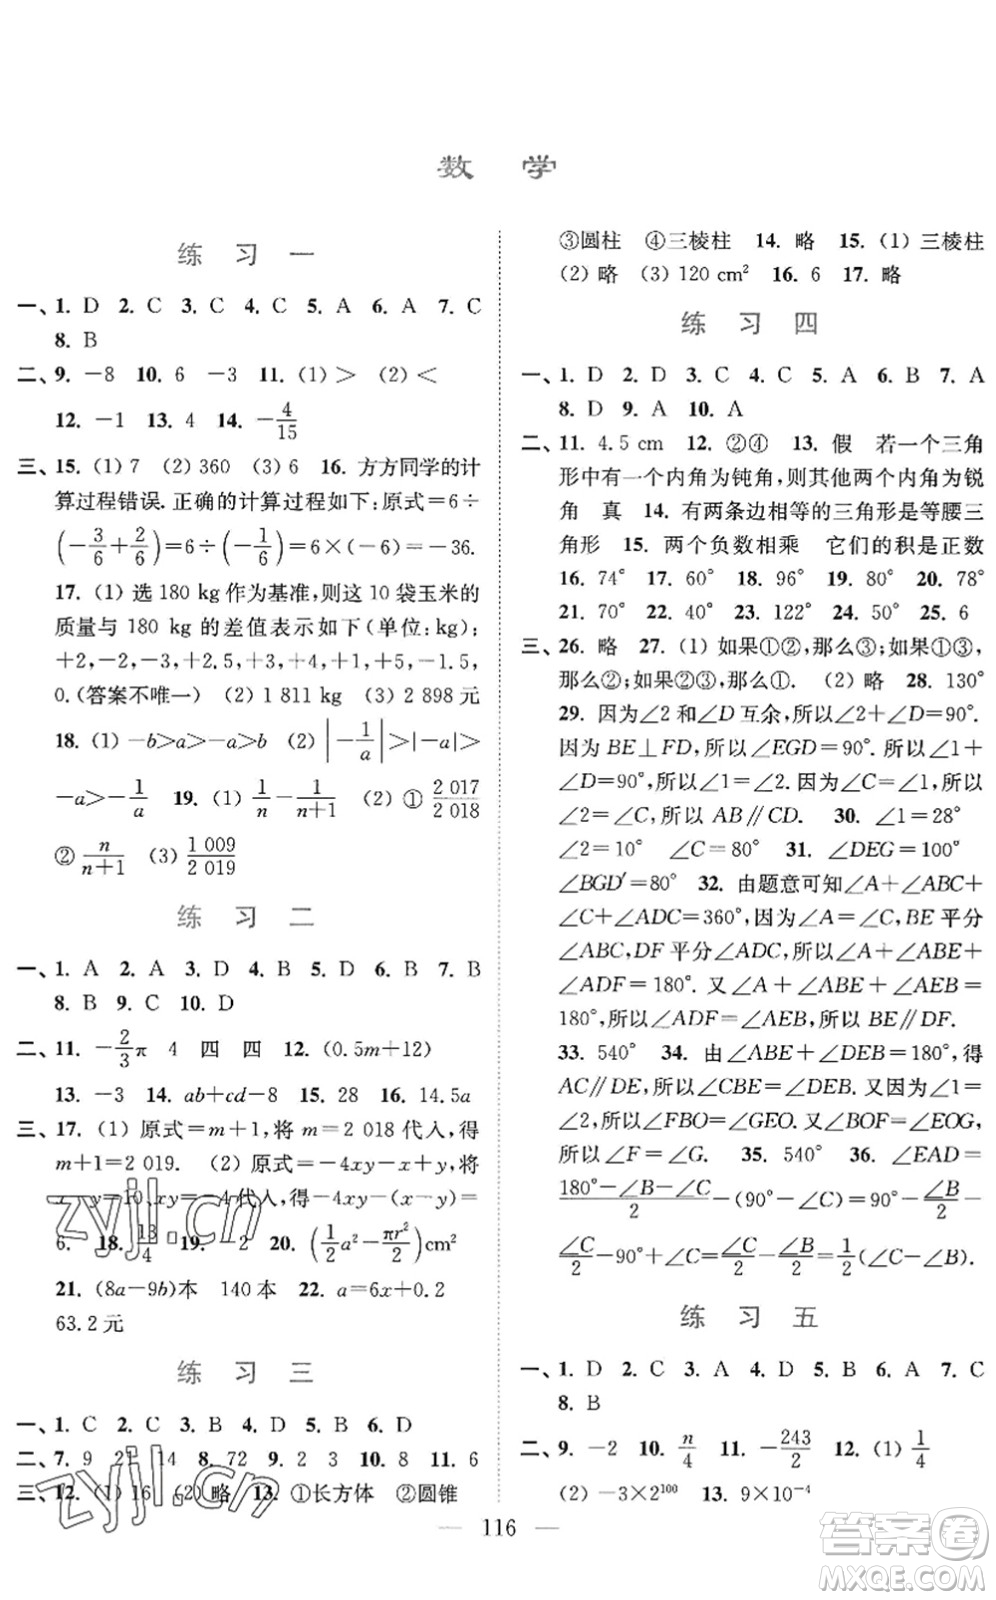 数 学
练 习 一
一、1. D 2. C 3. C 4. C 5. A 6. A 7. C
8. B
二、9. －8 10. 6 －3 11. (1)＞ (2)＜
12. －1 13. 4 14. －4/15
三、15. (1) 7 (2) 360 (3) 6 16. 方方同学的计
算过程错误. 正确的计算过程如下:原式＝6÷
(－3/6＋2/6)＝6÷(－1/6)＝6×(－6)＝－36.
17. (1) 选 180 kg 作为基准,则这 10 袋玉米的
质量与 180 kg 的差值表示如下(单位:kg):
＋2,－2,－1,＋2.5,＋3,＋4,＋1,＋5,－1.5,
0.(答案不唯一) (2) 1 811 kg (3) 2 898 元
18. (1) －b＞a＞－a＞b (2) |－1/a|＞|－a|＞
－a＞－1/a 19. (1) 1/n－1/(n＋1) (2) ① 2 017/2 018
② n/(n＋1) (3) 1 009/2 019
练 习 二
一、1. A 2. A 3. D 4. B 5. D 6. B 7. B
8. B 9. C 10. D
二、11. －2/3π 4 四 四 12. (0.5m＋12)
13. －3 14. ab＋cd－8 15. 28 16. 14.5a
三、17. (1) 原式＝m＋1,将 m＝2 018代入,得
m＋1＝2 019. (2) 原式＝－4xy－x＋y,将
x－y＝10,xy＝－4代入,得－4xy－(x－y)＝
6. 18. 13/4 19. －2 20. (1/2a²－πr²/2)cm²
21. (8a－9b)本 140 本 22. a＝6x＋0.2
63.2 元
练 习 三
一、1. C 2. C 3. B 4. D 5. B 6. D
二、7. 9 21 14 8. 72 9. 30 10. 8 11. 6
三、12. (1) 16 (2) 略 13. ①长方体 ②圆锥
③圆柱 ④三棱柱 14. 略 15. (1) 三棱柱
(2) 略 (3) 120 cm² 16. 6 17. 略
练 习 四
一、1. D 2. D 3. C 4. C 5. A 6. B 7. A
8. D 9. A 10. A
二、11. 4.5 cm 12. ②④ 13. 假 若一个三角
形中有一个内角为钝角,则其他两个内角为锐
角 真 14. 有两条边相等的三角形是等腰三
角形 15. 两个负数相乘 它们的积是正数
16. 74° 17. 60° 18. 96° 19. 80° 20. 78°
21. 70° 22. 40° 23. 122° 24. 50° 25. 6
三、26. 略 27. (1) 如果①②,那么③;如果①③,
那么②;如果②③,那么①. (2) 略 28. 130°
29. 因为∠2和∠D 互余,所以∠2＋∠D＝90°.
因为 BE⊥FD,所以∠EGD＝90°,所以∠1＋
∠D＝90°,所以∠1＝∠2. 因为∠C＝∠1,所以
∠2＝∠C,所以 AB∥CD. 30. ∠1＝28°
∠2＝10° ∠C＝80° 31. ∠DEG＝100°
∠BGD′＝80° 32. 由题意可知∠A＋∠ABC＋
∠C＋∠ADC＝360°,因为∠A＝∠C,BE 平分
∠ABC,DF 平分∠ADC,所以∠A＋∠ABE＋
∠ADF＝180°. 又∠A＋∠ABE＋∠AEB＝
180°,所以∠ADF＝∠AEB,所以 BE∥DF.
33. 540° 34. 由∠ABE＋∠DEB＝180°,得
AC∥DE,所以∠CBE＝∠DEB. 又∠1＝
∠2,所以∠FBO＝∠GEO. 又∠BOF＝∠EOG,
所以∠F＝∠G. 35. 540° 36. ∠EAD＝
(180°－∠B－∠C)/2－(90°－∠C)＝90°－∠B/2－
∠C/2－90°＋∠C＝∠C/2－∠B/2＝1/2(∠C－∠B).
练 习 五
一、1. D 2. C 3. A 4. D 5. B 6. A 7. C
8. B
二、9. －2 10. n/4 11. －243/2 12. (1) 1/4
(2) －3×2¹⁰⁰ 13. 9×10⁻⁴
116
zyjl.cn
zyjl.cn
答案圈
MXQE.COM